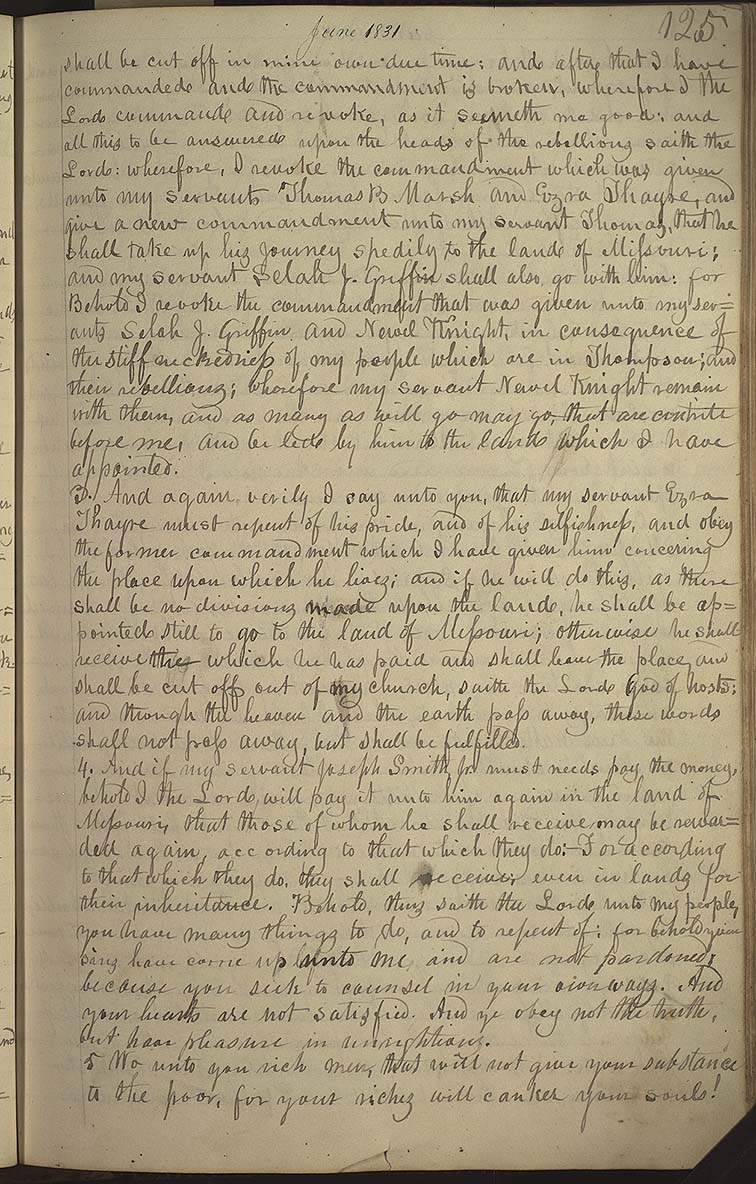 June 1831
125
shall be cut off in mine own due time: and after that I have
commanded and the commandment is broken, wherefore I the
Lord command and revoke, as it seemeth me good: and
all this to be answered upon the heads of the rebellious saith the
Lord: wherefore, I revoke the commandment which was given
unto my servants Thomas B Marsh and Ezra Thayre, and
give a new commandment unto my servant Thomas, that he
shall take up his Journey spedily to the land of Missouri;
and my servant Selah J. Griffin shall also go with him: for
Behold I revoke the commandment that was given unto my ser=
ants Selah J. Griffin and Newel Knight, in consequence of
the stiffneckedness of my people which are in Thompson; and
their rebellions; wherefore my servant Newel Knight remain
with them, and as many as will go may go, that are contrite
before me, and be led by him to the land which I have
appointed.
3. And again verily I say unto you, that my servant Ezra
Thayre must repent of his pride, and of his selfishness, and obey
the former commandment which I have given him concering
the place upon which he lives; and if he will do this, as there
shall be no divisions made upon the land, he shall be ap=
pointed still to go to the land of Missouri; otherwise he shall
receive the which he has paid and shall leave the place, and
shall be cut off out of my church, saith the Lord God of hosts;
and though the heaven and the earth pass away, these words
shall not pass away, but shall be fulfilled.
4. And if my servant Joseph Smith Jr. must needs pay the money,
behold I the Lord, will pay it unto him again in the land of
Missouri, that those of whom he shall receive may be rewar=
ded again, according to that which they do:- For according
to that which they do, they shall receive; even in lands for
their inheritance. Behold, thus saith the Lord unto my people,
you have many things to do, and to repent of: for behold your
sins have come up unto me, and are not pardoned,
because you seek to counsel in your own ways. And
your hearts are not satisfied. And ye obey not the truth,
but have pleasure in unrightious.
5 Wo unto you rich men, that will not give your substance
to the poor, for your riches will canker your souls!